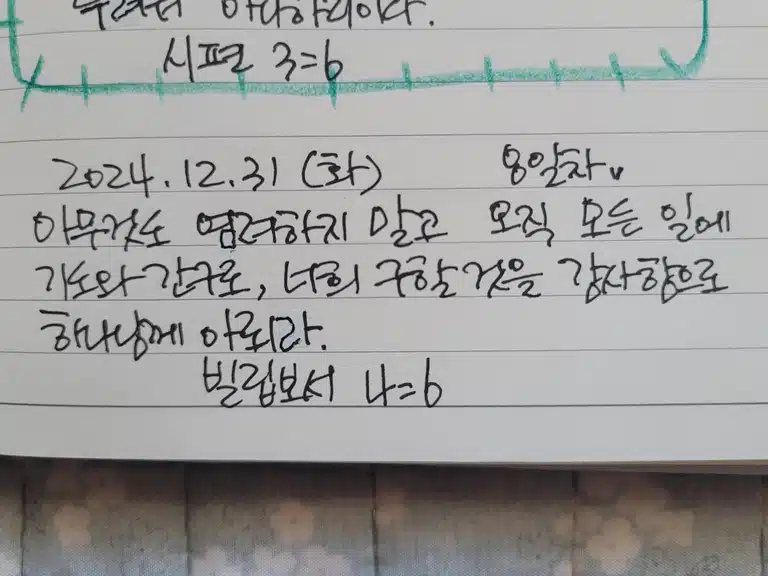 아니하리이다.
시편 3=6
2024.12.31 (화) 8일차
아무것도 염려하지 말고 오직 모든 일에
기도와 간구로, 너희 구할 것을 감사함으로
하나님께 아뢰라.
빌립보서 4=6